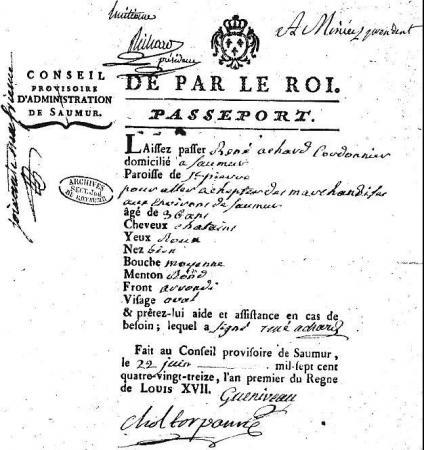 huitieme
président
CONSEIL
PROVISOIRE
D'ADMINISTRATION
DE SAUMUR.
DE PAR LE ROI.
PASSEPORT.
LAissez passer René achard Cordonnier
domicilié a Saumur
Paroisse de St pierre
pour aller achepter des marchandises
aux Environs de Saumur
âgé de 36 ans
Cheveux chatains
Yeux Roux
Nez bien
Bouche moyenne
Menton Rond
Front arrondi
Visage oval
& prêtez-lui aide et assistance en cas de
besoin ; lequel a signé rené achard
Fait au Conseil provisoire de Saumur,
le 22 juin mil-sept cent
quatre-vingt-treize, l'an premier du Regne
de LOUIS XVII. Gueniveau
ARCHIVES